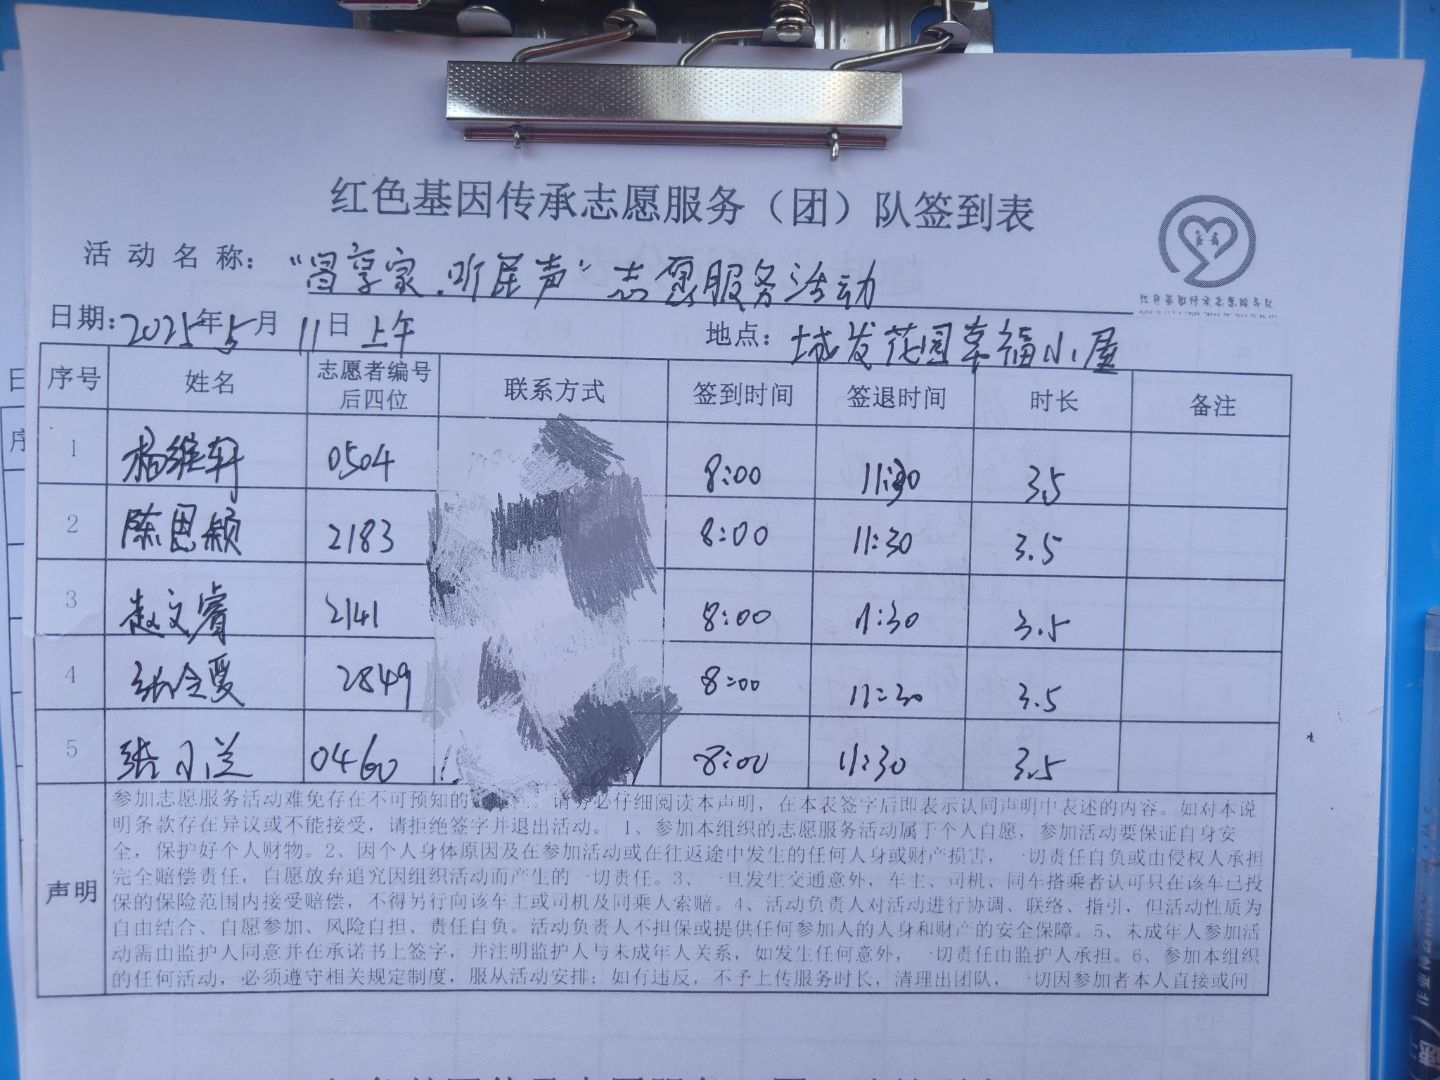 红色基因传承志愿服务（团）队签到表
活动名称：“阅享家.听昆声”志愿服务活动
红色基因传承志愿服务队
日期：2025年5月11日上午 地点：城发花园幸福小屋
序号 姓名 志愿者编号后四位 联系方式 签到时间 签退时间 时长 备注
1 杨维轩 0504 8:00 11:30 3.5
2 陈思颖 2183 8:00 11:30 3.5
3 赵文睿 2141 8:00 11:30 3.5
4 2849 8:00 11:30 3.5
5 张小兰 0460 8:00 11:30 3.5
声明
参加志愿服务活动难免存在不可预知的 请务必仔细阅读本声明，在本表签字后即表示认同声明中表述的内容。如对本说
明条款存在异议或不能接受，请拒绝签字并退出活动。 1、参加本组织的志愿服务活动属于个人自愿，参加活动要保证自身安
全，保护好个人财物。2、因个人身体原因及在参加活动或在往返途中发生的任何人身或财产损害，一切责任自负或由侵权人承担
完全赔偿责任，自愿放弃追究因组织活动而产生的一切责任。3、一旦发生交通意外，车主、司机、同车搭乘者认可只在该车已投
保的保险范围内接受赔偿，不得另行向该车主或司机及同乘人索赔。4、活动负责人对活动进行协调、联络、指引，但活动性质为
自由结合、自愿参加、风险自担、责任自负。活动负责人不担保或提供任何参加人的人身和财产的安全保障。5、未成年人参加活
动需由监护人同意并在承诺书上签字，并注明监护人与未成年人关系，如发生任何意外，一切责任由监护人承担。6、参加本组织
的任何活动，必须遵守相关规定制度，服从活动安排；如有违反，不予上传服务时长，清理出团队，一切因参加者本人直接或间